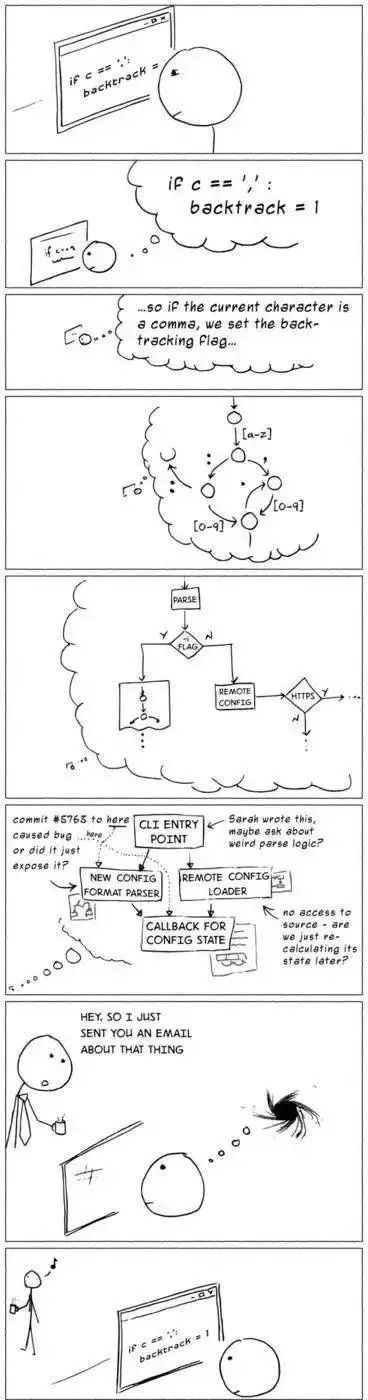 if c == ',':
backtrack =
if c == ',' :
backtrack = 1
if c==
...so if the current character is
a comma, we set the back-
tracking flag...
[a-z]
,
[0-9]
[0-9]
PARSE
Y
-i
FLAG
N
REMOTE
CONFIG
HTTPS
Y
N
commit #5763 to here
caused bug ... here
or did it just
expose it?
CLI ENTRY
POINT
Sarah wrote this,
maybe ask about
weird parse logic?
NEW CONFIG
FORMAT PARSER
REMOTE CONFIG
LOADER
CALLBACK FOR
CONFIG STATE
no access to
source - are
we just re-
calculating its
state later?
HEY, SO I JUST
SENT YOU AN EMAIL
ABOUT THAT THING
if c == ',':
backtrack = 1